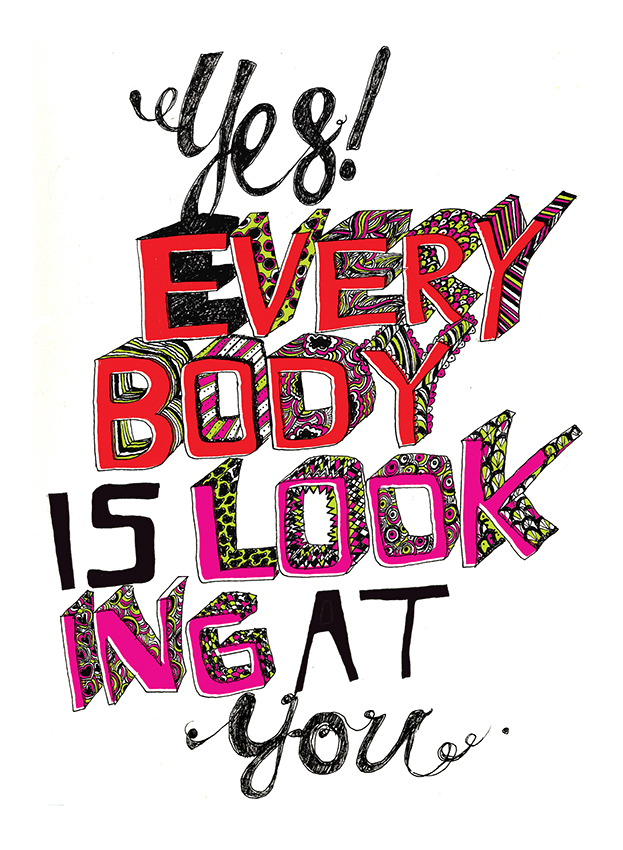 Yes!
EVERY
BODY
IS LOOK
ING AT
you.